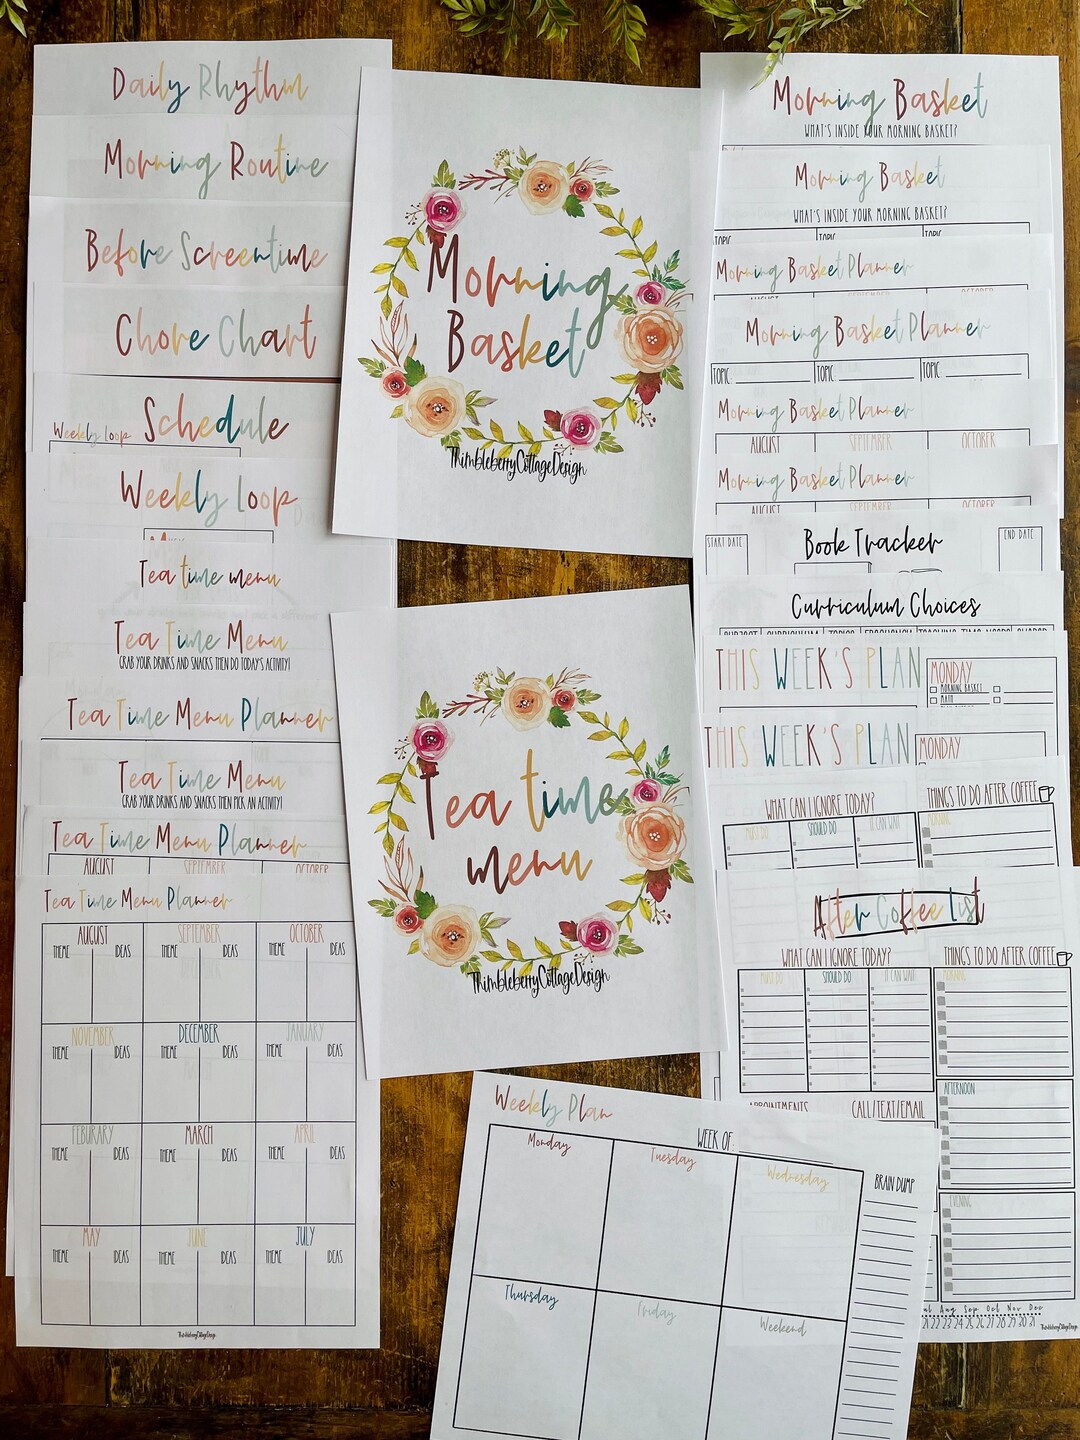 Daily Rhythm
Morning Routine
Before Screentime
Chore Chart
Weekly loop Schedule
Weekly Loop
Tea time menu
Tea Time Menu
GRAB YOUR DRINKS AND SNACKS THEN DO TODAY'S ACTIVITY!
Tea Time Menu Planner
Tea Time Menu
GRAB YOUR DRINKS AND SNACKS THEN PICK AN ACTIVITY!
Tea Time Menu Planner
AUGUST SEPTEMBER OCTOBER
Tea Time Menu Planner
AUGUST SEPTEMBER OCTOBER
THEME IDEAS THEME IDEAS THEME IDEAS
NOVEMBER DECEMBER JANUARY
THEME IDEAS THEME IDEAS THEME IDEAS
FEBURARY MARCH APRIL
THEME IDEAS THEME IDEAS THEME IDEAS
MAY JUNE JULY
THEME IDEAS THEME IDEAS THEME IDEAS
ThimbleberryCottageDesign
Morning
Basket
ThimbleberryCottageDesign
Tea time
menu
ThimbleberryCottageDesign
Weekly Plan
WEEK OF:
Monday Tuesday Wednesday
BRAIN DUMP
Thursday Friday Weekend
Morning Basket
WHAT'S INSIDE YOUR MORNING BASKET?
Morning Basket
WHAT'S INSIDE YOUR MORNING BASKET?
TOPIC TOPIC TOPIC
Morning Basket Planner
AUGUST SEPTEMBER OCTOBER
Morning Basket Planner
TOPIC: TOPIC: TOPIC:
Morning Basket Planner
AUGUST SEPTEMBER OCTOBER
Morning Basket Planner
AUGUST SEPTEMBER OCTOBER
START DATE Book Tracker END DATE
Curriculum Choices
SUBJECT CURRICULUM TOPICS FREQUENCY
THIS WEEK'S PLAN
MONDAY
MORNING BASKET
MATH
THIS WEEK'S PLAN
MONDAY
WHAT CAN I IGNORE TODAY? THINGS TO DO AFTER COFFEE
MUST DO SHOULD DO IT CAN WAIT MORNING
After Coffee List
WHAT CAN I IGNORE TODAY? THINGS TO DO AFTER COFFEE
MUST DO SHOULD DO IT CAN WAIT MORNING
AFTERNOON
APPOINTMENTS CALL/TEXT/EMAIL
EVENING
Aug Sep Oct Nov Dec
22 23 24 25 26 27 28 29 30 31
ThimbleberryCottageDesign